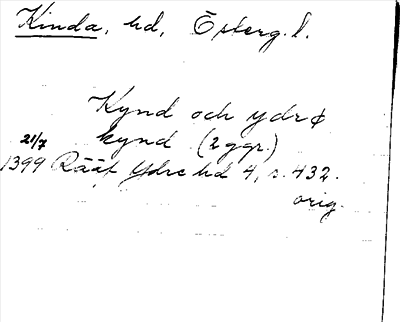 Kinda, hd, Österg. l.
Kynd och ydrø
kynd (2 ggr.)
21/7
1399 Rääf Ydre hd 4, s. 432.
orig.